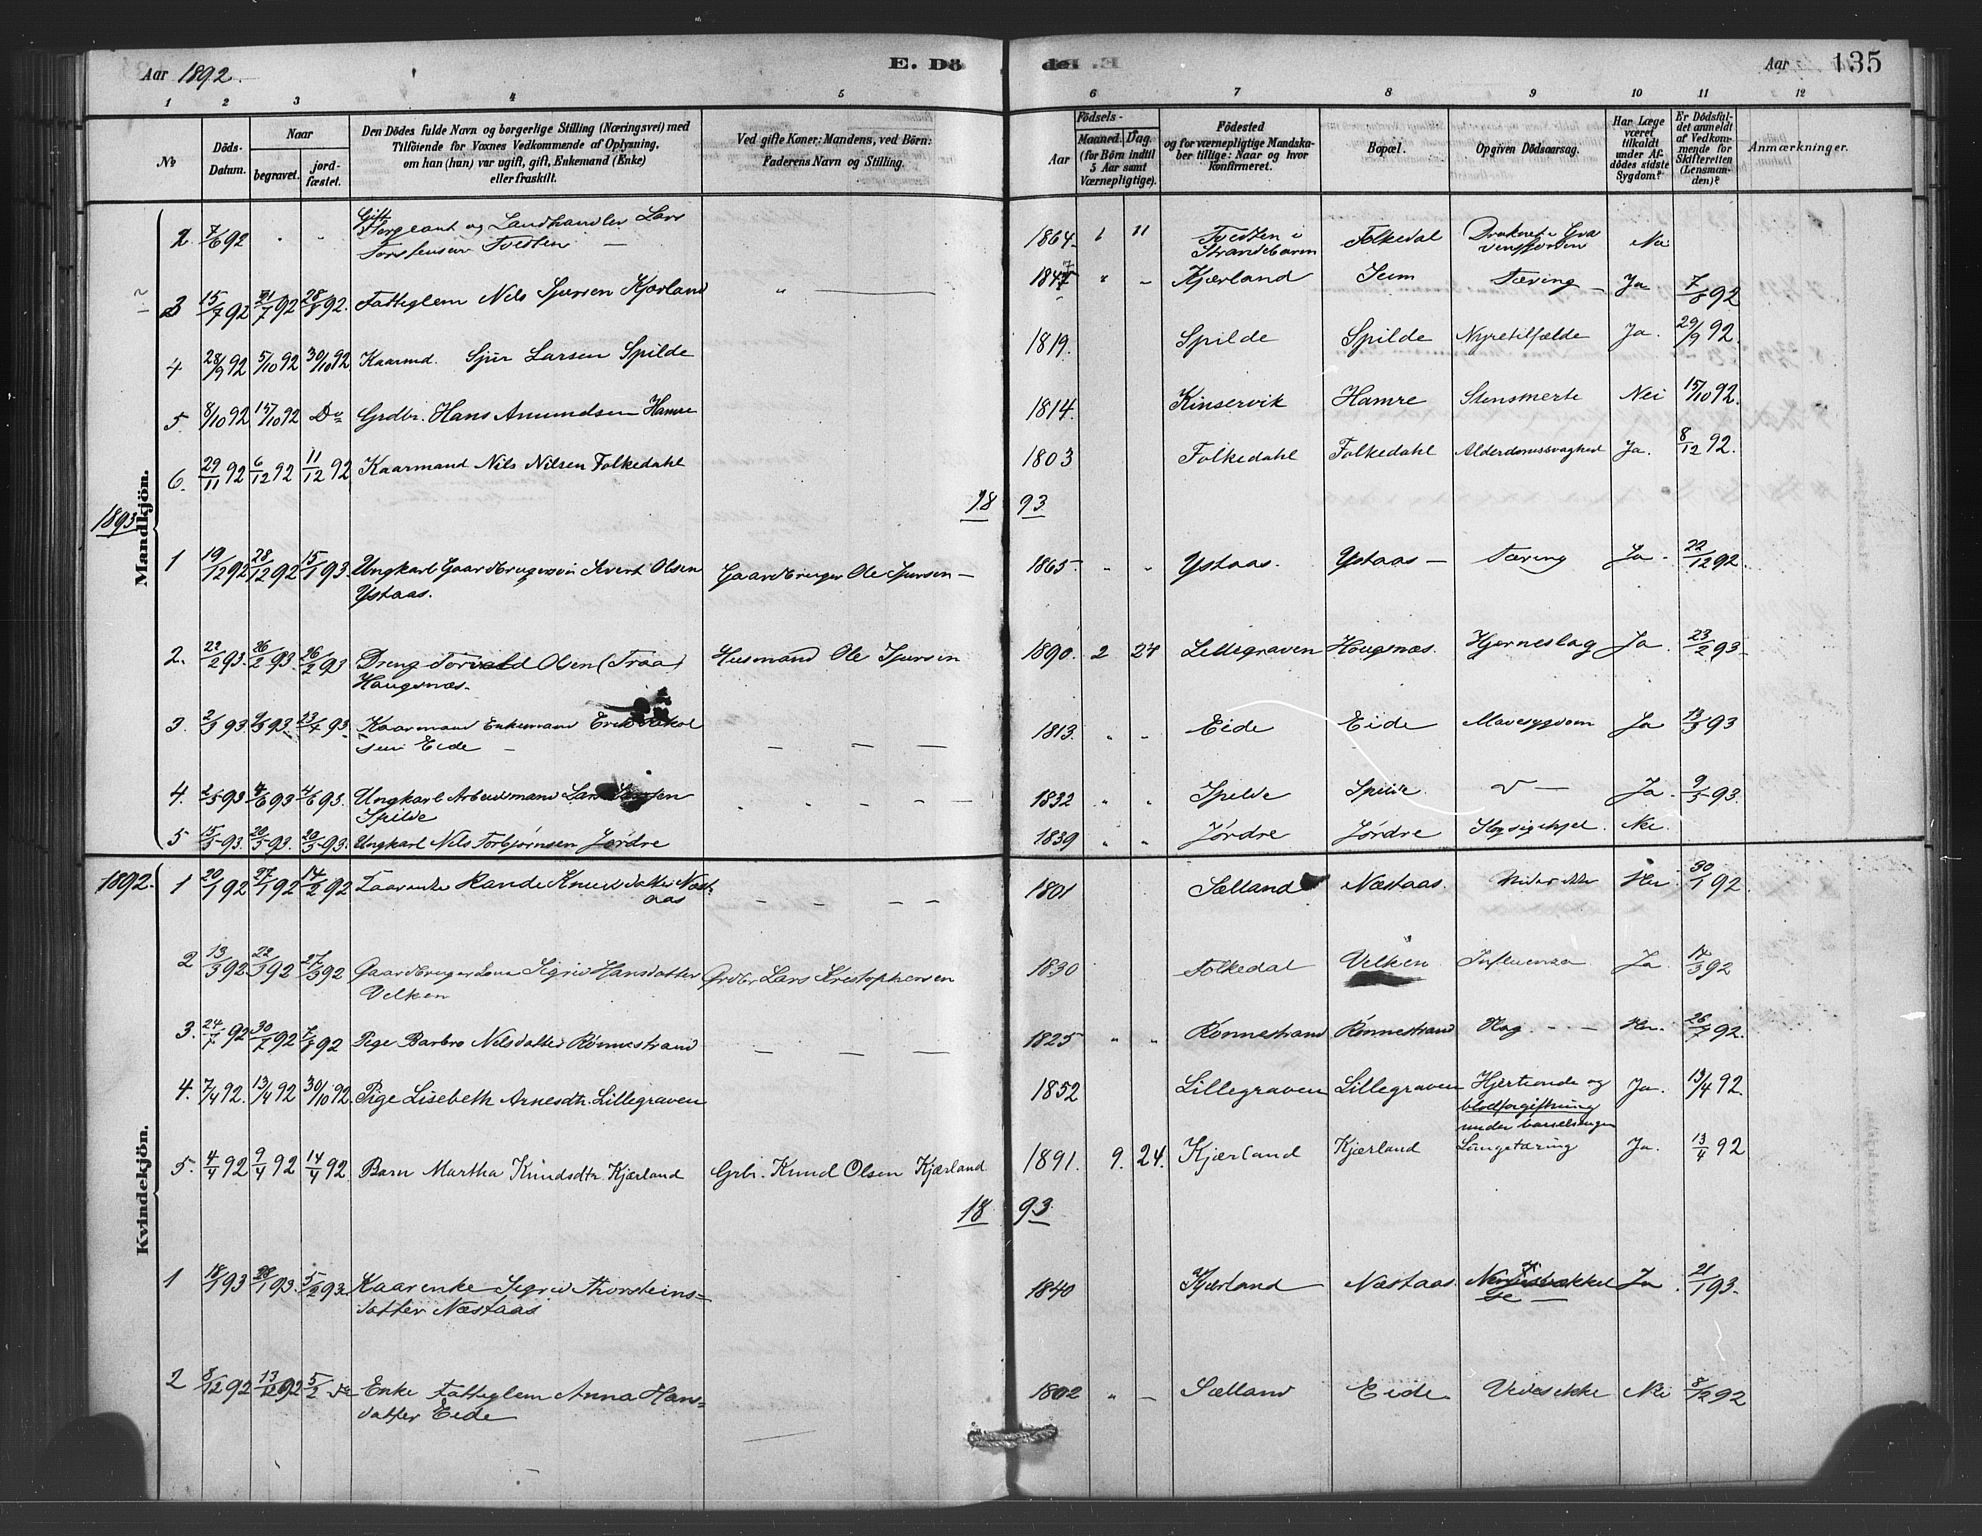 Aar 1892. E. Dö de. Aar 135
1 2 3 4 5 6 7 8 9 10 11 12
No
Döds-Datum.
Naar
begravet.
jord-fæstet.
Den Dödes fulde Navn og borgerlige Stilling (Næringsvei) med
Tilföiende for Voxnes Vedkommende af Oplysning,
om han (hun) var ugift, gift, Enkemand (Enke)
eller fraskilt.
Ved gifte Koner: Mandens, ved Börn:
Faderens Navn og Stilling.
Födsels-
Aar
Maaned. Dag.
(for Börn indtil
5 Aar samt
Værnepligtige).
Födested
og for værnepligtige Mandska-
ber tillige: Naar og hvor
konfirmeret.
Bopæl.
Opgiven Dödsaarsag.
Har Læge
været
tilkaldt
under Af-
dödes sidste
Sygdom?
Er Dödsfal-
det anmeldt
af Vedkom-
mende for
Skifteretten
(Lensman-
den)?
Anmærkninger.
Mandkjön.
2 7/6 92 " " Gift Sergeant og Landhandler Lars 1864 1 11 Tvedten i Folkedal Druknet i Gra Nei
Torstensen Tvedten — Strandebarm vensfjorden
3 15/7 92 21/7 92 28/8 92. Fattiglem Nils Sjursen Kjærland " — 1847 " " Kjærland Seim Tæring — Ja 7/8 92
4 28/9 92 5/10 92 30/10 92 Kaarmd. Sjur Larsen Spilde 1819. Spilde Spilde Nyretilfælde Ja. 29/9 92.
5. 8/10 92 15/10 92 Do Grdbr. Hans Amundsen Hamre 1814. Kinservik Hamre Stensmerte Nei 15/10 92.
6. 29/11 92 6/12 92 11/12 92 Kaarmand Nils Nilsen Folkedahl 1803 Folkedahl Folkedahl Alderdomssvaghed Ja. 8/12 92.
1893 18 93
1 19/12 92 28/12 92 15/1 93 Ungkarl Gaardbrugersøn Sivert Olsen Gaardbruger Ole Sjursen — 1865 " " Ystaas. Ystaas — Tæring Ja. 22/12 92.
Ystaas.
2. 22/2 93. 26/2 93 26/2 93 Dreng Torvald Olsen (Traa) Husmand Ole Sjursen 1890. 2 24 Lillegraven Hougsnæs. Hjerneslag Ja. 23/2 93
Haugsnæs.
3. 2/3 93 9/3 93. 23/4 93 Kaarmand Enkemand — — — 1813. " " Eide Eide Mavesygdom Ja 13/3 93
sen Eide —
4. 2/5 93 4/6 93 4/6 93. Ungkarl Arbeidsmand Lars " " " " 1832 " " Spilde Spilde. — Ja. 9/5 93.
Spilde
5 15/5 93. 20/5 93. 20/5 93. Ungkarl Nils Torbjørnsen Jørdre 1839 " " Jørdre Jørdre. Nei.
Kvindekjön.
1892. 1 20/1 92 27/1 92 14/2 92 Kaarenke Rande Knudsdatter Næst — — — — 1801 Sælland Næstaas. Vides ikke Nei 30/1 92.
aas
2 13/3 92 22/3 92 27/3 92 Gaardbrugerkone Sigrid Hansdatter Grdbr Lars Kristophersen 1830 Folkedal Velken Influensa Ja 17/3 92
Velken
3. 24/7 92 30/7 92 7/8 92 Pige Barbro Nilsdatter Rønnestrand — — — — 1825 " " Rønnestrand Rønnestrand Slag. — — Nei. 26/7 92.
4. 7/4 92. 13/4 92 30/10 92. Pige Lisebeth Arnesdtr. Lillegraven 1852 Lillegraven Lillegraven Hjerteonde og Ja. 13/4 92.
blodforgiftning
under barselsengen
5. 4/4 92 9/4 92 14/4 92. Barn Martha Knudsdtr. Kjærland Grbr. Knud Olsen Kjærland 1891. 9. 24. Kjærland Kjærland Lungetæring Ja. 13/4 92
18 93
1 18/1 93 28/1 93. 5/2 93. Kaarenke Sigrid Thorsteins= 1840 Kjærland Næstaas Ja 21/1 93.
datter Næstaas
2 8/12 92 13/12 92 5/2 Enke Fattiglem Anna Hans= 1802 " — Sælland Eide Vides ikke Nei 8/12 92
datter Eide